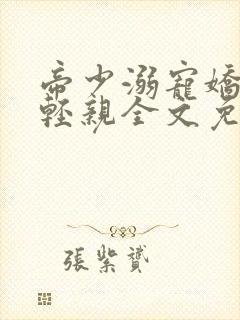 帝少溺寵嬌
輕親全文免
張紫贇